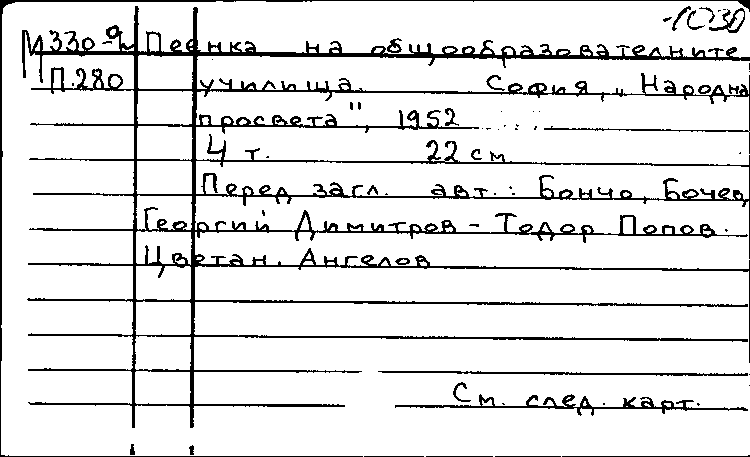 -1030
М330-9 Песнка на общообразователните
П.280 училища. София, „Народна
просвета", 1952
4 т. 22 см.
Перед загл. авт.: Бончо, Бочев,
Георгий Димитров - Тодор Попов.
Цветан. Ангелов
См. след. карт.